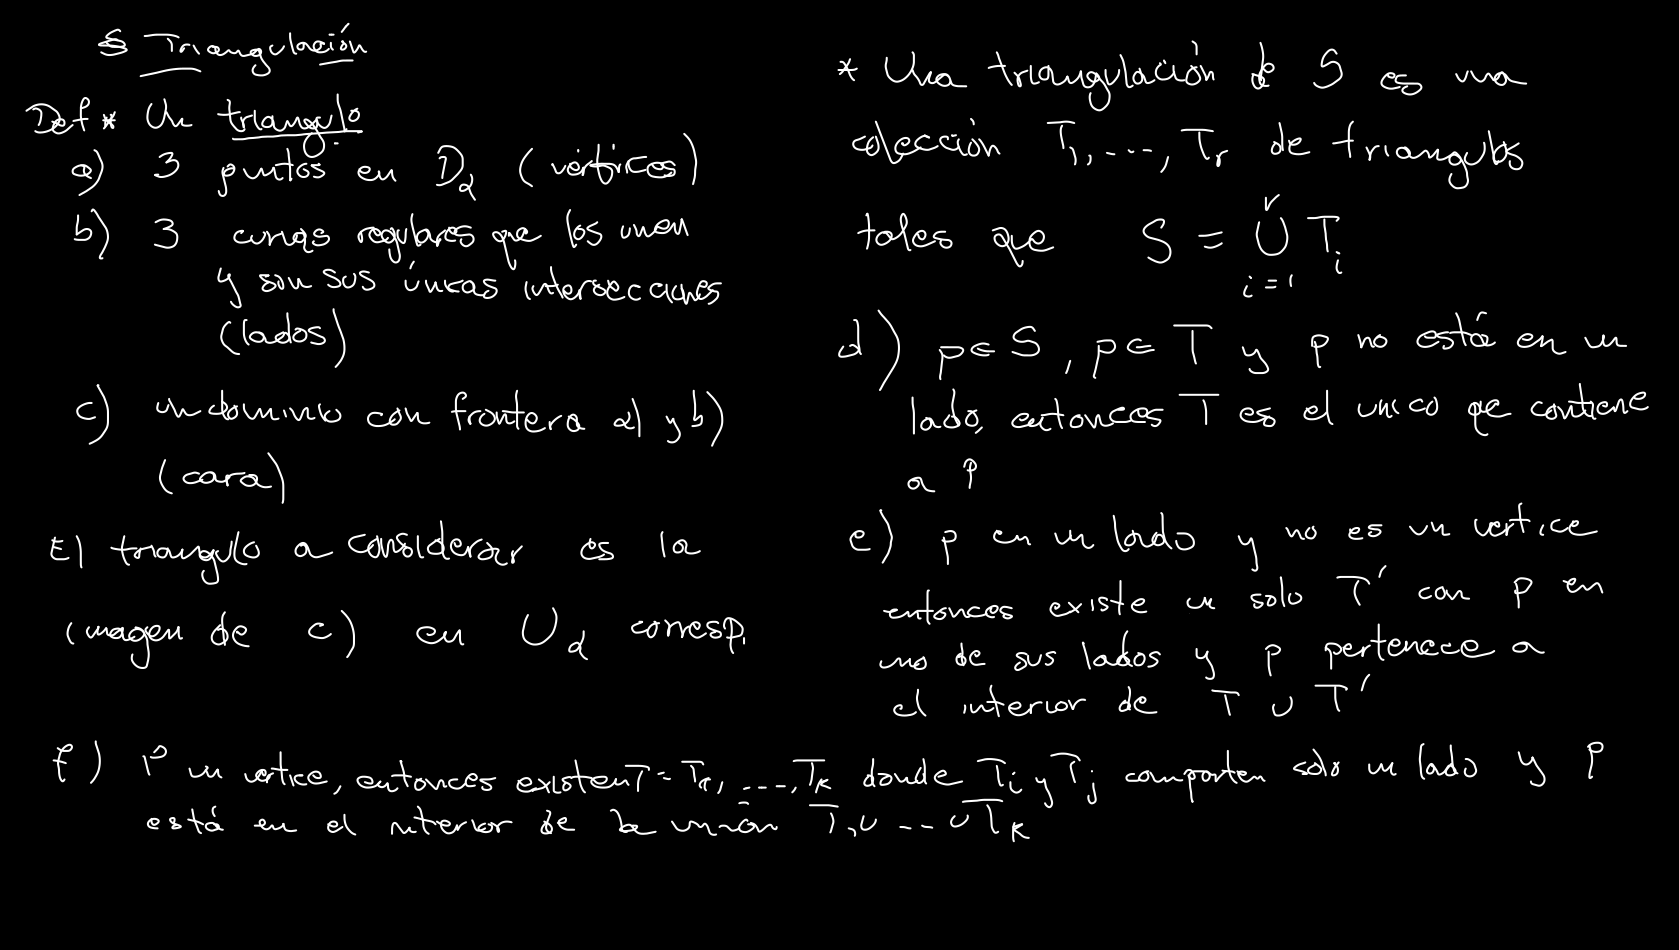 § Triangulación
Def * Un triangulo
a) 3 puntos en D_α (vértices)
b) 3 curvas regulares que los unen
y son sus únicas intersecciones
(lados)
c) un dominio con frontera a) y b)
(cara)
El triangulo a considerar es la
imagen de c) en U_α corresp.
* Una triangulación de S es una
colección T_1, ..., T_r de triangulos
tales que S = ∪_{i=1}^{r} T_i
d) p ∈ S, p ∈ T y p no está en un
lado, entonces T es el unico que contiene
a p
e) p en un lado y no es un vertice
entonces existe un solo T' con p en
uno de sus lados y p pertenece a
el interior de T ∪ T'
f) P un vertice, entonces existen T = T_1, ..., T_k donde T_i y T_j comparten solo un lado y p
está en el interior de la unión T_1 ∪ ... ∪ T_k